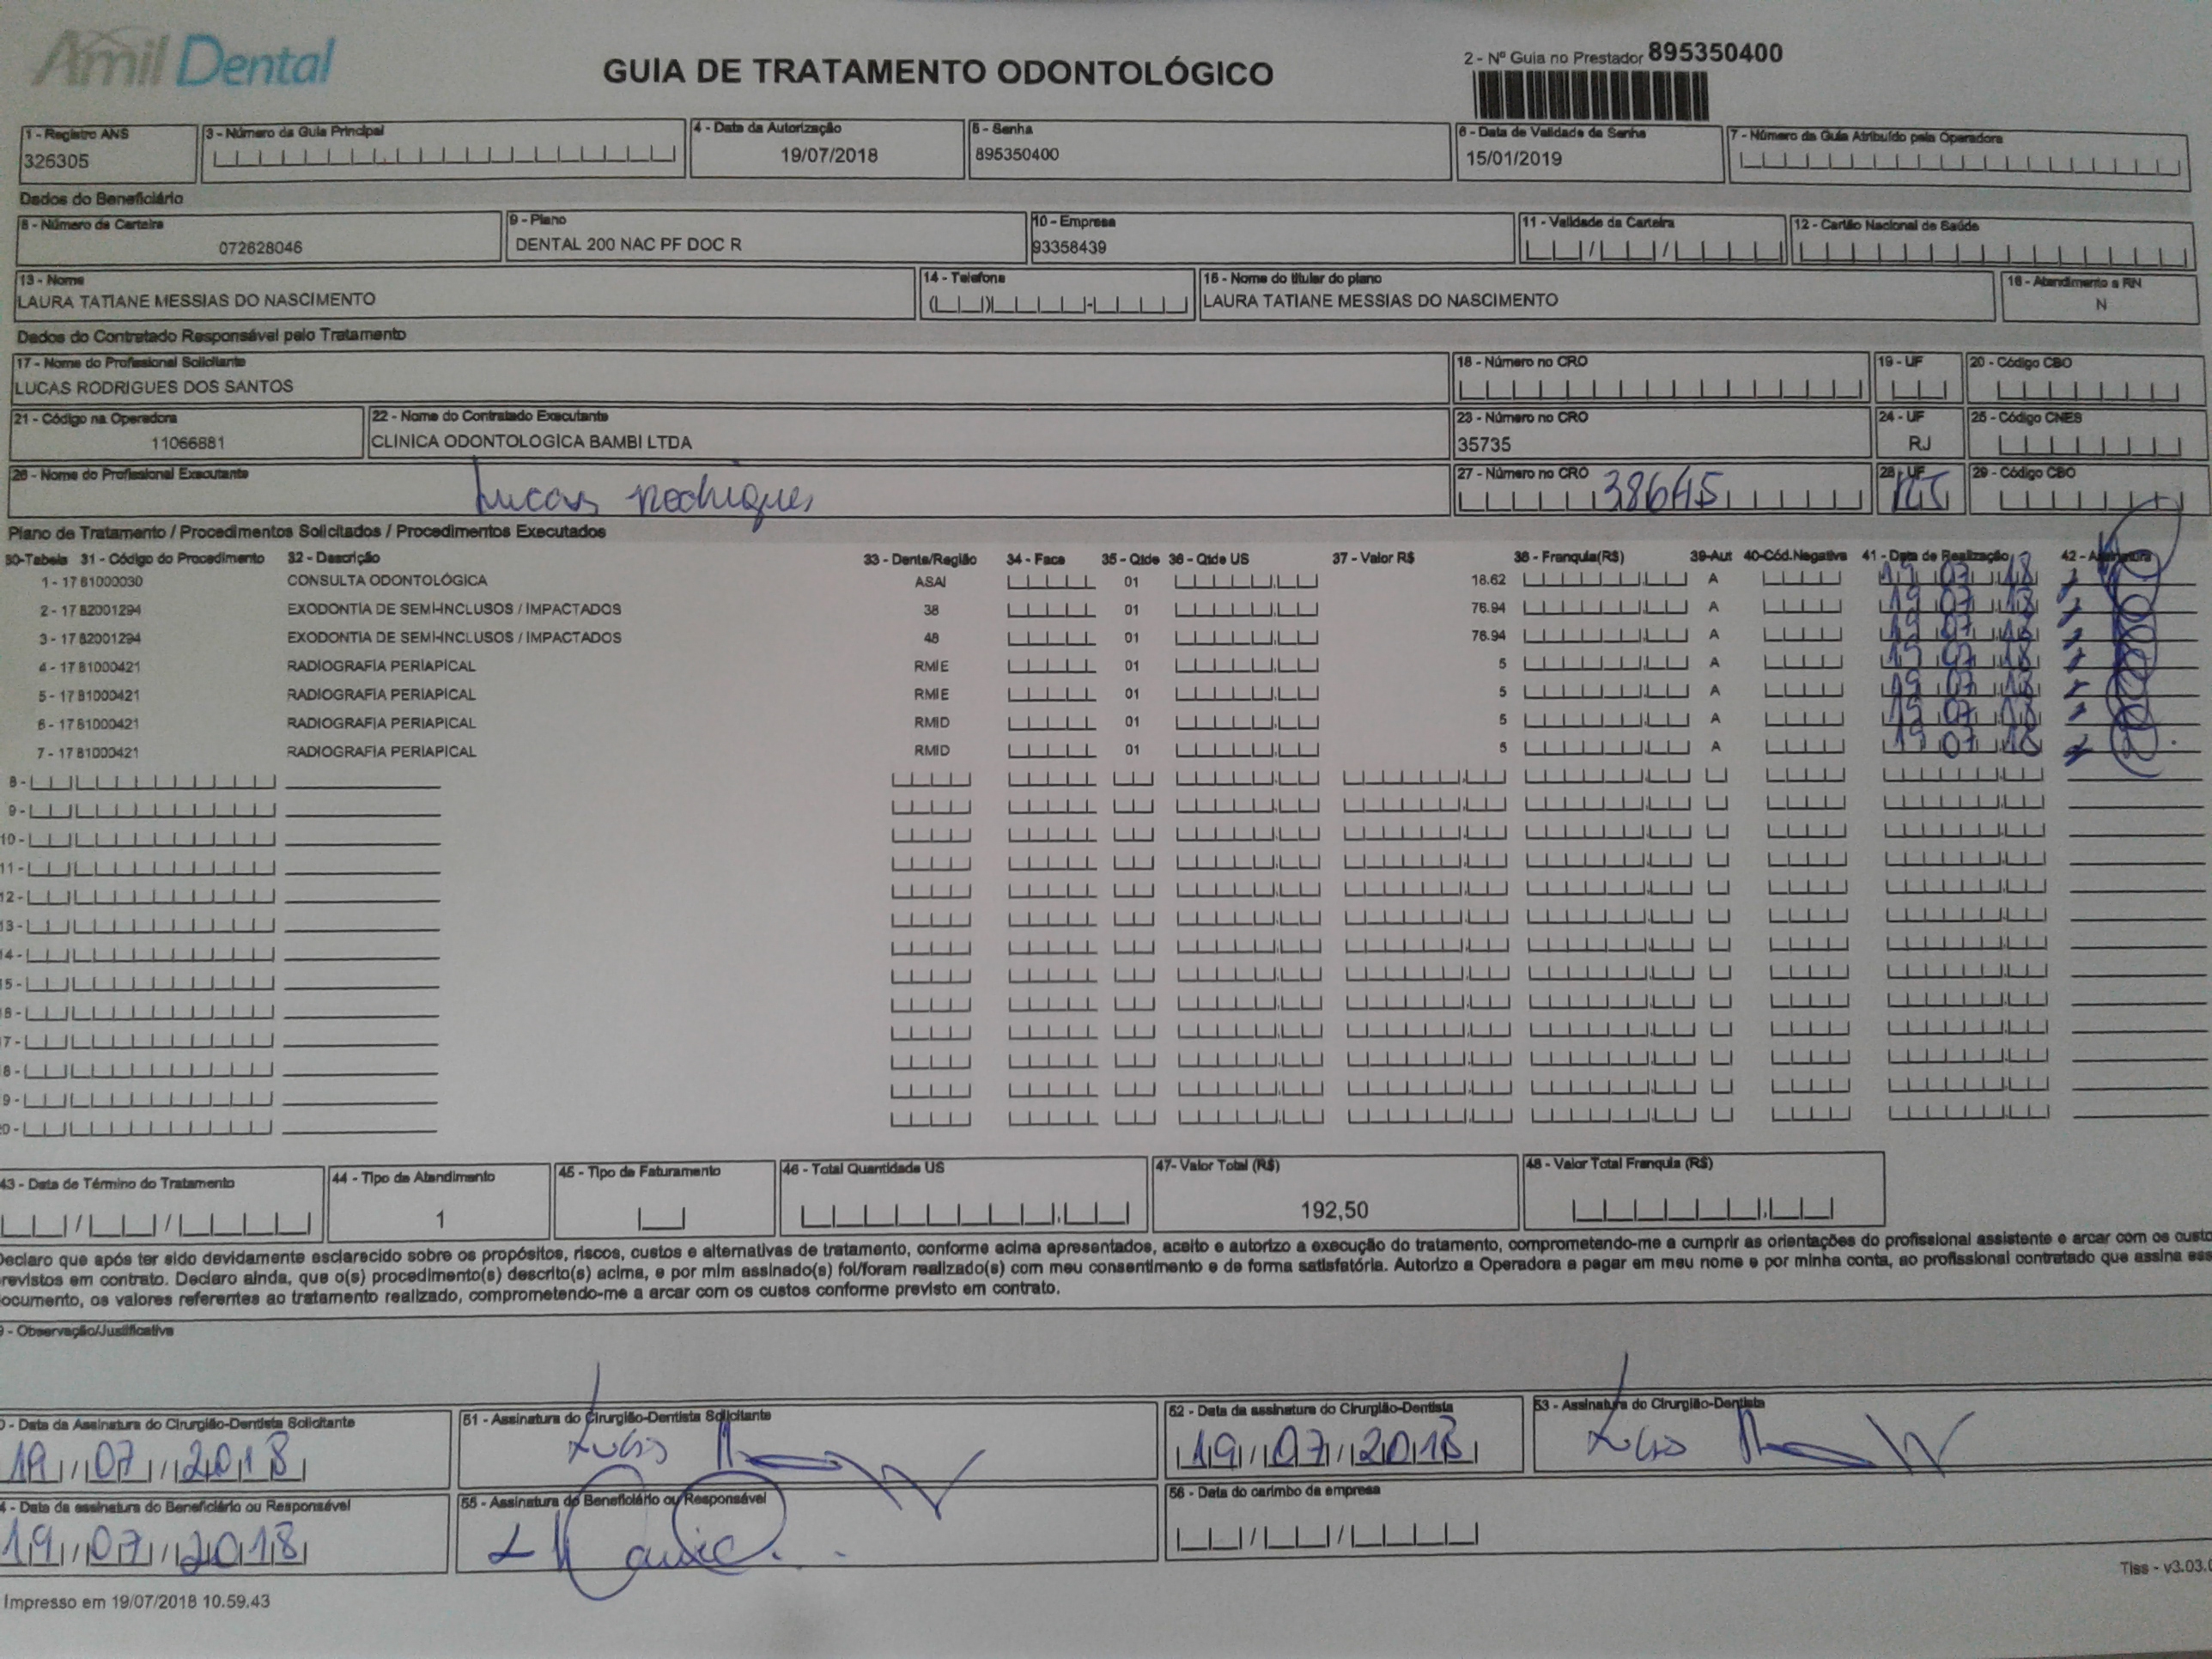 Amil Dental
GUIA DE TRATAMENTO ODONTOLÓGICO
2 - Nº Guia no Prestador 895350400
1 - Registro ANS 3 - Número da Guia Principal 4 - Data da Autorização 5 - Senha 6 - Data de Validade da Senha 7 - Número da Guia Atribuído pela Operadora
326305 19/07/2018 895350400 15/01/2019
Dados do Beneficiário
8 - Número da Carteira 9 - Plano 10 - Empresa 11 - Validade da Carteira 12 - Cartão Nacional de Saúde
072628046 DENTAL 200 NAC PF DOC R 93358439
13 - Nome 14 - Telefone 15 - Nome do titular do plano 16 - Atendimento a RN
LAURA TATIANE MESSIAS DO NASCIMENTO LAURA TATIANE MESSIAS DO NASCIMENTO N
Dados do Contratado Responsável pelo Tratamento
17 - Nome do Profissional Solicitante 18 - Número no CRO 19 - UF 20 - Código CBO
LUCAS RODRIGUES DOS SANTOS
21 - Código na Operadora 22 - Nome do Contratado Executante 23 - Número no CRO 24 - UF 25 - Código CNES
11066881 CLINICA ODONTOLOGICA BAMBI LTDA 35735 RJ
26 - Nome do Profissional Executante 27 - Número no CRO 28 - UF 29 - Código CBO
Lucas Rodrigues 38645 RJ
Plano de Tratamento / Procedimentos Solicitados / Procedimentos Executados
30-Tabela 31 - Código do Procedimento 32 - Descrição 33 - Dente/Região 34 - Face 35 - Qtde 36 - Qtde US 37 - Valor R$ 38 - Franquia(R$) 39-Aut 40-Cód.Negativa 41 - Data de Realização 42 - Assinatura
1 - 17 81000030 CONSULTA ODONTOLÓGICA ASAI 01 18.62 A 19 07 18
2 - 17 82001294 EXODONTIA DE SEMI-INCLUSOS / IMPACTADOS 38 01 76.94 A 19 07 18
3 - 17 82001294 EXODONTIA DE SEMI-INCLUSOS / IMPACTADOS 48 01 76.94 A 19 07 18
4 - 17 81000421 RADIOGRAFIA PERIAPICAL RMIE 01 5 A 19 07 18
5 - 17 81000421 RADIOGRAFIA PERIAPICAL RMIE 01 5 A 19 07 18
6 - 17 81000421 RADIOGRAFIA PERIAPICAL RMID 01 5 A 19 07 18
7 - 17 81000421 RADIOGRAFIA PERIAPICAL RMID 01 5 A 19 07 18
8 -
9 -
10 -
11 -
12 -
13 -
14 -
5 -
6 -
7 -
8 -
9 -
0 -
43 - Data de Término do Tratamento 44 - Tipo de Atendimento 45 - Tipo de Faturamento 46 - Total Quantidade US 47- Valor Total (R$) 48 - Valor Total Franquia (R$)
1 192,50
Declaro que após ter sido devidamente esclarecido sobre os propósitos, riscos, custos e alternativas de tratamento, conforme acima apresentados, aceito e autorizo a execução do tratamento, comprometendo-me a cumprir as orientações do profissional assistente e arcar com os custo
revistos em contrato. Declaro ainda, que o(s) procedimento(s) descrito(s) acima, e por mim assinado(s) foi/foram realizado(s) com meu consentimento e de forma satisfatória. Autorizo a Operadora a pagar em meu nome e por minha conta, ao profissional contratado que assina ess
ocumento, os valores referentes ao tratamento realizado, comprometendo-me a arcar com os custos conforme previsto em contrato.
9 - Observação/Justificativa
0 - Data da Assinatura do Cirurgião-Dentista Solicitante 51 - Assinatura do Cirurgião-Dentista Solicitante 52 - Data da assinatura do Cirurgião-Dentista 53 - Assinatura do Cirurgião-Dentista
19 07 2018 Lucas 19 07 2018 Lucas
4 - Data da assinatura do Beneficiário ou Responsável 55 - Assinatura do Beneficiário ou Responsável 56 - Data do carimbo da empresa
19 07 2018
Tiss - v3.03.0
Impresso em 19/07/2018 10.59.43